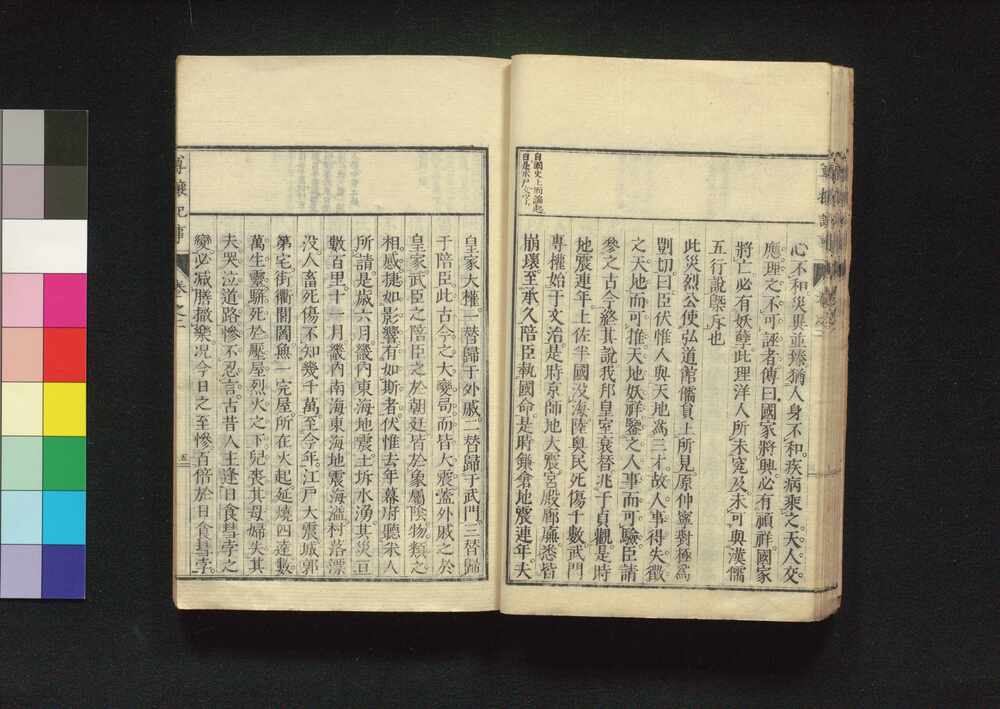 自國史上而論起
心不和災異並臻猶人身不和疾病乘之天人交
應理之不可誣者傳曰國家將興必有禎祥國家
將亡必有妖孽此理洋人所未究及未可與漢儒
五行說槩斥也
此災烈公使弘道館儒員上所見原仲寧對極爲
剴切曰臣伏惟人與天地爲三才故人事得失徵
之天地而可推天地妖祥鑒之人事而可驗臣請
參之古今終其說我邦皇室衰替兆于貞觀是時
地震連年土佐半國沒海陸奧民死傷千數武門
專權始于文治是時京師地大震宮殿廊廡悉皆
崩壞至承久陪臣執國命是時鎌倉地震連年夫
皇家大權一替歸于外戚二替歸于武門三替歸
于陪臣此古今之大變局而皆大震蓋外戚之於
皇家武臣之陪臣之於朝廷皆於象屬陰物類之
相感捷如影響有如斯者伏惟去年幕府聽米人
所請是歲六月畿內東海地震土坼水湧其災亘
數百里十一月畿內南海東海地震海溢村落漂
沒人畜死傷不知幾千萬至今年江戶大震城郭
第宅街衢閭閻無一完屋所在火起延燒四達數
萬生靈騈死於壓屋烈火之下兒喪其母婦失其
夫哭泣道路慘不忍言古昔人主逢日食彗孛之
變必減膳撤樂况今日之至慘百倍於日食彗孛
尊攘紀事
卷之二
五